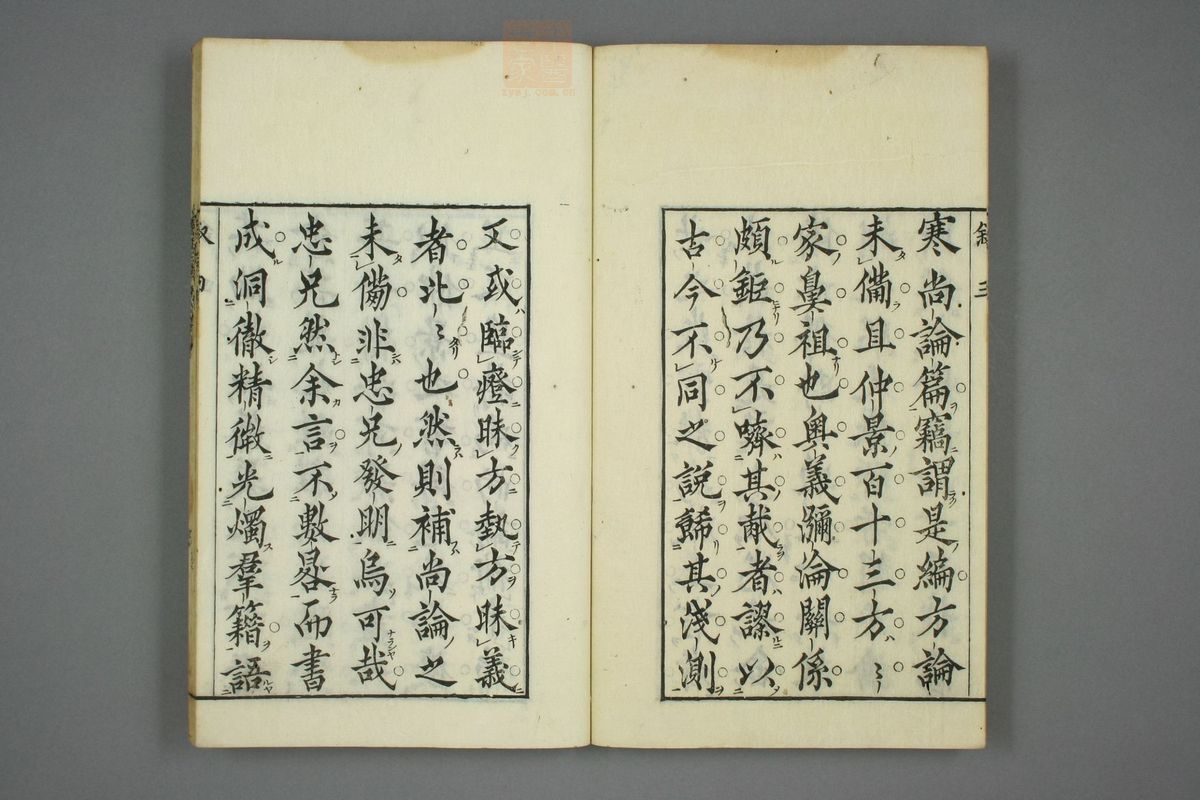 敘 三
寒尚論篇竊謂是編方論
未備且仲景百十三方方
家鼻祖也奧義彌淪關係
頗鉅乃不嚌其胾者謬以
古今不同之說歸其淺測
又或臨證昧方執方昧義
者比比也然則補尚論之
未備非忠兄發明烏可哉
忠兄然余言不數晷而書
成洞徹精微光燭羣籍語
zysj.com.cn